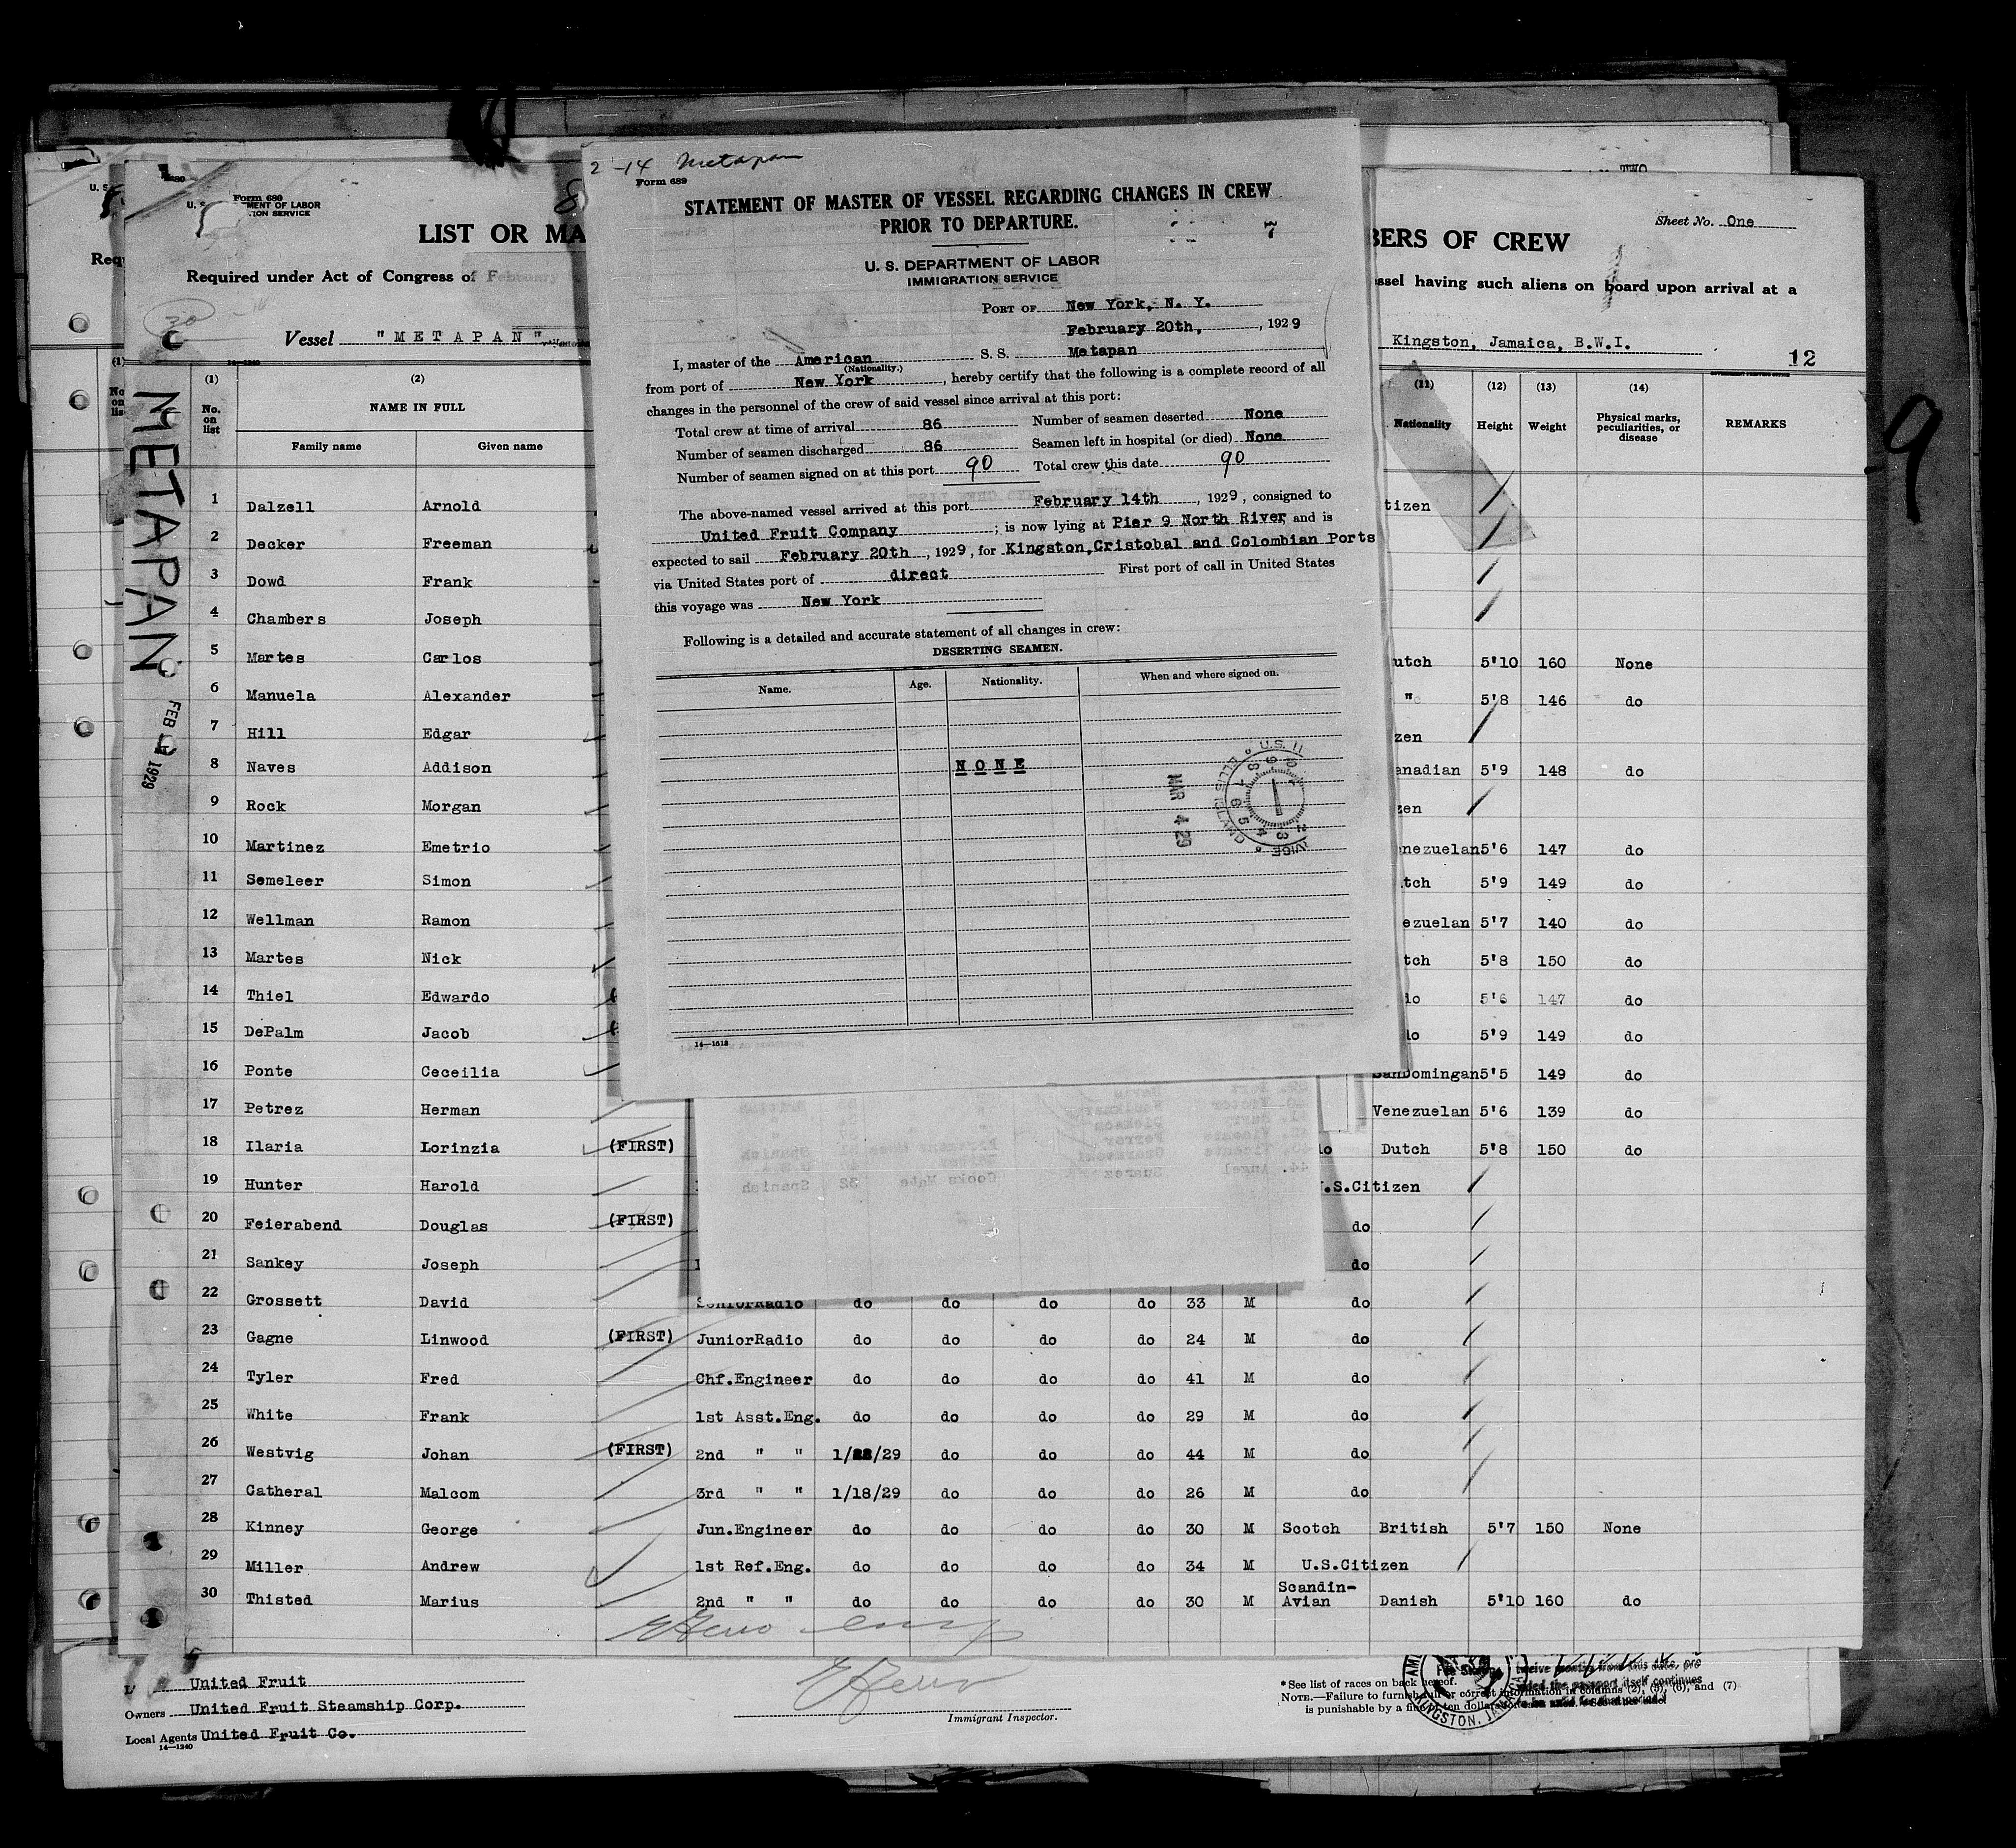 2 -14 Metapan
Form 689
STATEMENT OF MASTER OF VESSEL REGARDING CHANGES IN CREW
PRIOR TO DEPARTURE.
7
U. S. DEPARTMENT OF LABOR
IMMIGRATION SERVICE
PORT OF New York, N. Y.
February 20th, , 1929
I, master of the American S. S. Metapan
(Nationality.)
from port of New York , hereby certify that the following is a complete record of all
changes in the personnel of the crew of said vessel since arrival at this port:
Total crew at time of arrival 86 Number of seamen deserted None
Number of seamen discharged 86 Seamen left in hospital (or died) None
Number of seamen signed on at this port 90 Total crew this date 90
The above-named vessel arrived at this port February 14th , 1929, consigned to
United Fruit Company ; is now lying at Pier 9 North River, and is
expected to sail February 20th , 1929, for Kingston,Cristobal and Colombian Ports
via United States port of direct First port of call in United States
this voyage was New York
Following is a detailed and accurate statement of all changes in crew:
DESERTING SEAMEN.
Name. Age. Nationality. When and where signed on.
NONE
MAR 4 29
14—1618
Form 680
LIST OR MA
BERS OF CREW
Sheet No. One
Required under Act of Congress of February
ssel having such aliens on board upon arrival at a
Vessel "METAPAN"
Kingston, Jamaica, B.W.I.
12
14—1240
METAPAN
FEB 14 1929
9
(1) (2) (11) (12) (13) (14)
No. on list NAME IN FULL Nationality Height Weight Physical marks, peculiarities, or disease REMARKS
Family name Given name
1 Dalzell Arnold tizen
2 Decker Freeman
3 Dowd Frank
4 Chambers Joseph
5 Martes Carlos utch 5'10 160 None
6 Manuela Alexander " 5'8 146 do
7 Hill Edgar zen
8 Naves Addison anadian 5'9 148 do
9 Rock Morgan zen
10 Martinez Emetrio nezuelan 5'6 147 do
11 Semeleer Simon tch 5'9 149 do
12 Wellman Ramon ezuelan 5'7 140 do
13 Martes Nick tch 5'8 150 do
14 Thiel Edwardo do 5'6 147 do
15 DePalm Jacob do 5'9 149 do
16 Ponte Ceceilia SanDomingan 5'5 149 do
17 Petrez Herman Venezuelan 5'6 139 do
18 Ilaria Lorinzia (FIRST) do Dutch 5'8 150 do
19 Hunter Harold U.S.Citizen
20 Feierabend Douglas (FIRST) do
21 Sankey Joseph do
22 Grossett David SeniorRadio do do do do 33 M do
23 Gagne Linwood (FIRST) JuniorRadio do do do do 24 M do
24 Tyler Fred Chf.Engineer do do do do 41 M do
25 White Frank 1st Asst.Eng. do do do do 29 M do
26 Westvig Johan (FIRST) 2nd " " 1/28/29 do do do 44 M do
27 Catheral Malcom 3rd " " 1/18/29 do do do 26 M do
28 Kinney George Jun.Engineer do do do do 30 M Scotch British 5'7 150 None
29 Miller Andrew 1st Ref.Eng. do do do do 34 M U.S.Citizen
30 Thisted Marius 2nd " " do do do do 30 M Scandin-Avian Danish 5'10 160 do
United Fruit
Owners United Fruit Steamship Corp.
Local Agents United Fruit Co.
14—1240
Immigrant Inspector.
* See list of races on back hereof.
NOTE.—Failure to furnish full or correct information in columns (2), (5), (6), and (7)
is punishable by a fine of ten dollars